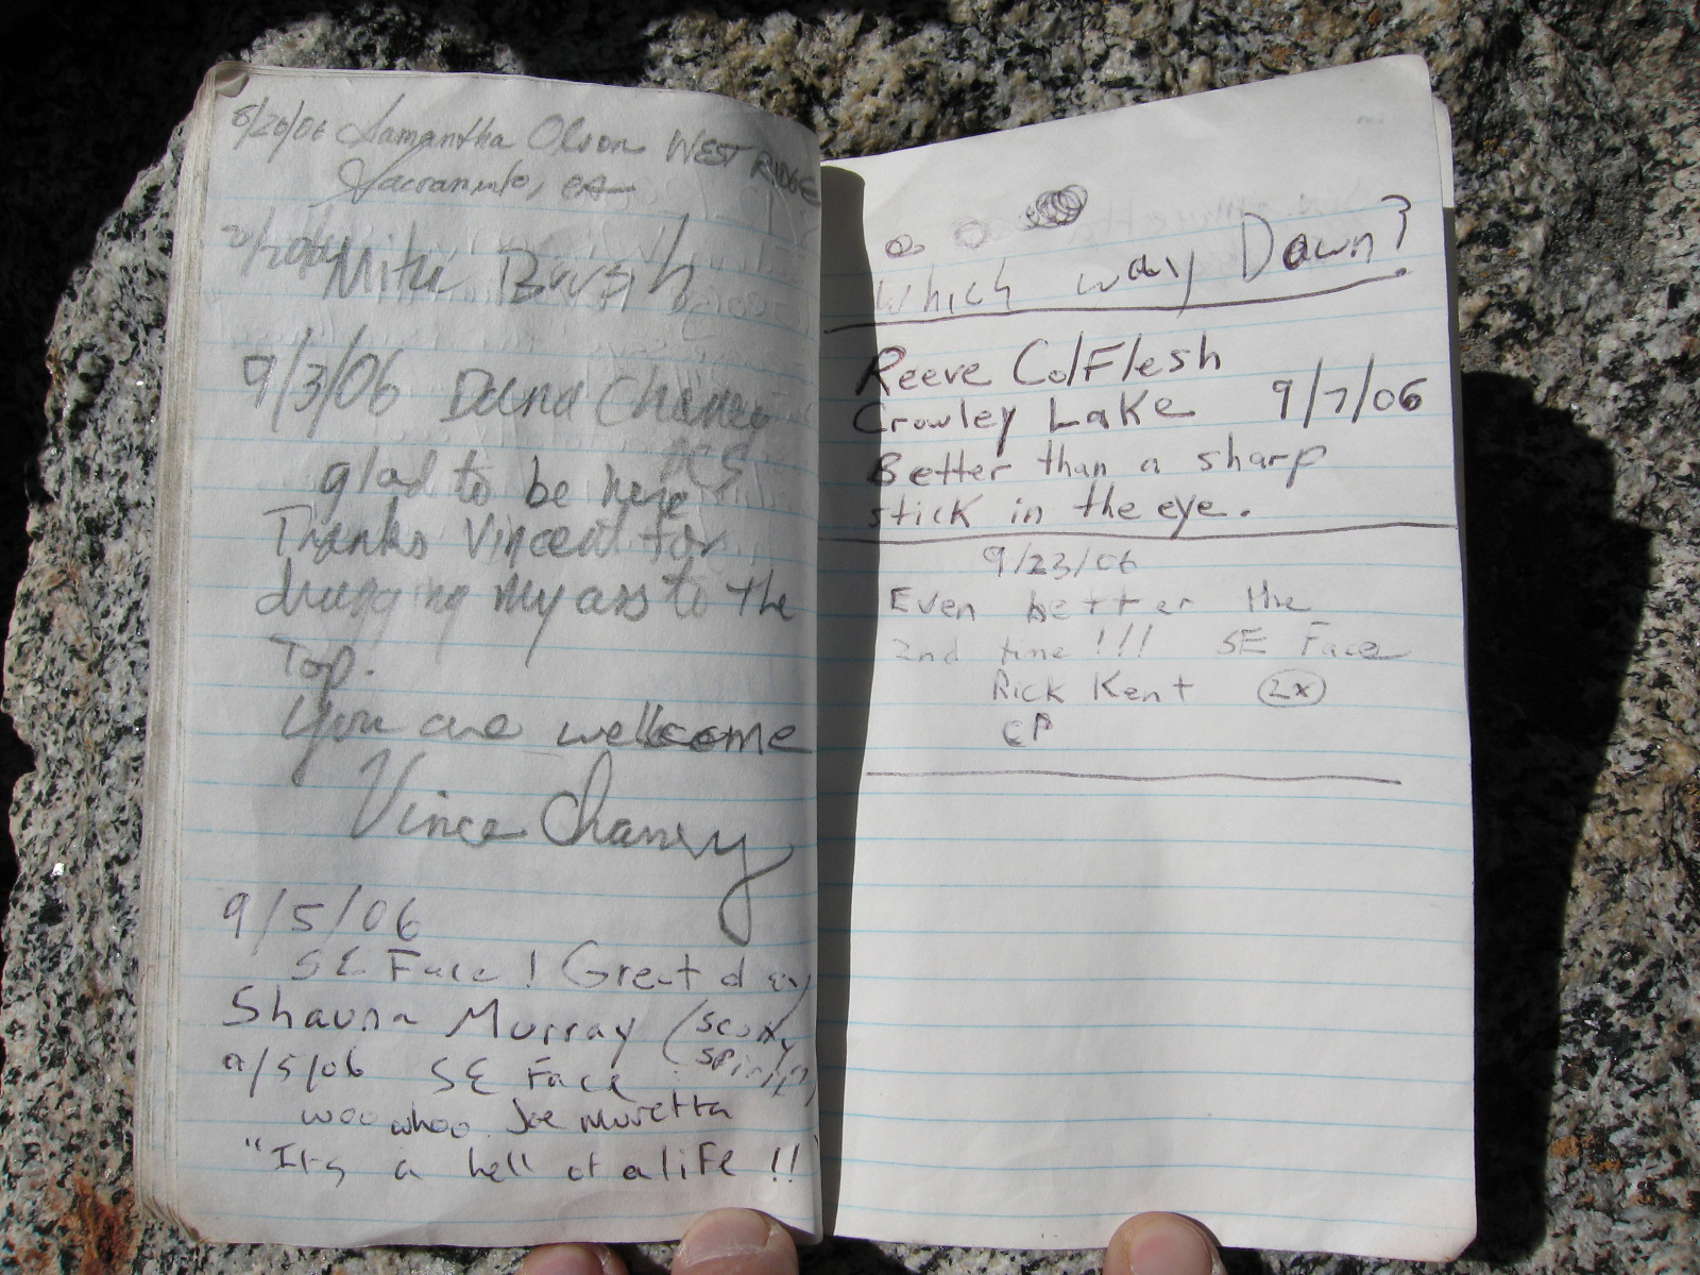 8/26/06 Samantha Olson WEST RIDGE
Sacramento, CA
Mike
9/3/06 Dana Chaney
glad to be here
Thanks Vincent for
my ass to the
Top.
You are wellcome
Vince Chaney
9/5/06
SE Face! Great day
Shauna Murray (
9/5/06 SE Face
woo whoo Joe Muretta
"Its a hell of a life!!"
Which way Down?
Reeve Colflesh
Crowley Lake 9/7/06
Better than a sharp
stick in the eye.
9/23/06
Even better the
2nd time!!! SE Face
Rick Kent 2x
CP